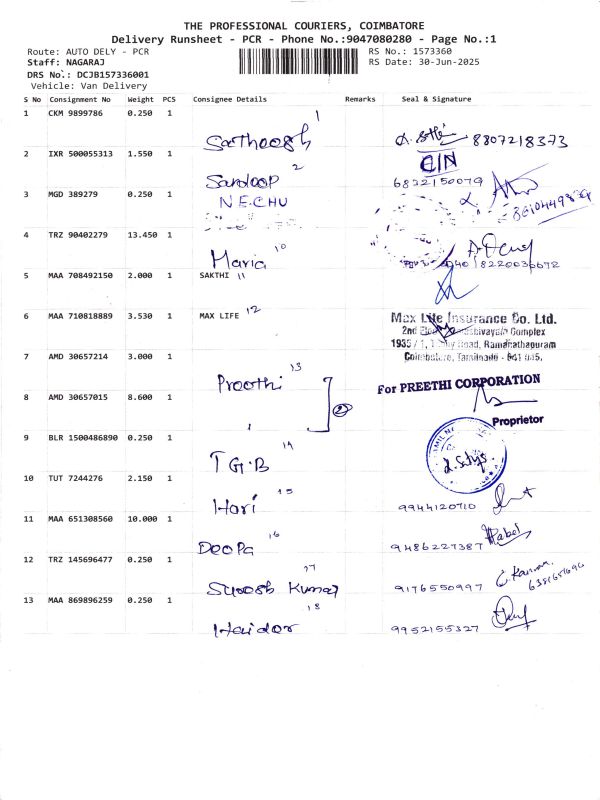 THE PROFESSIONAL COURIERS, COIMBATORE
Delivery Runsheet - PCR - Phone No.:9047080280 - Page No.:1
Route: AUTO DELY - PCR
RS No.: 1573360
Staff: NAGARAJ
RS Date: 30-Jun-2025
DRS No.: DCJB157336001
Vehicle: Van Delivery
S No Consignment No Weight PCS Consignee Details Remarks Seal & Signature
1 CKM 9899786 0.250 1
1
Sathoosh 8807218373
2 IXR 500055313 1.550 1
CIN
2
Sandoop 6832150079
3 MGD 389279 0.250 1
N.E.CHU
4 TRZ 90402279 13.450 1
10
Maria 8220036672
5 MAA 708492150 2.000 1 SAKTHI 11
6 MAA 710818889 3.530 1 MAX LIFE 12
Max Life Insurance Co. Ltd.
2nd Complex
Road, Ramanathapuram
Coimbatore, Tamilnadu - 641 045.
7 AMD 30657214 3.000 1
13
Preethi
For PREETHI CORPORATION
8 AMD 30657015 8.600 1
2
Proprietor
9 BLR 1500486890 0.250 1
14
T G.B
10 TUT 7244276 2.150 1
15
Hari 9944120710
11 MAA 651308560 10.000 1
16
Deepa 9486227387
12 TRZ 145696477 0.250 1
17
Suresh Kumar 9176550997
13 MAA 869896259 0.250 1
18
Haidar 9952155327